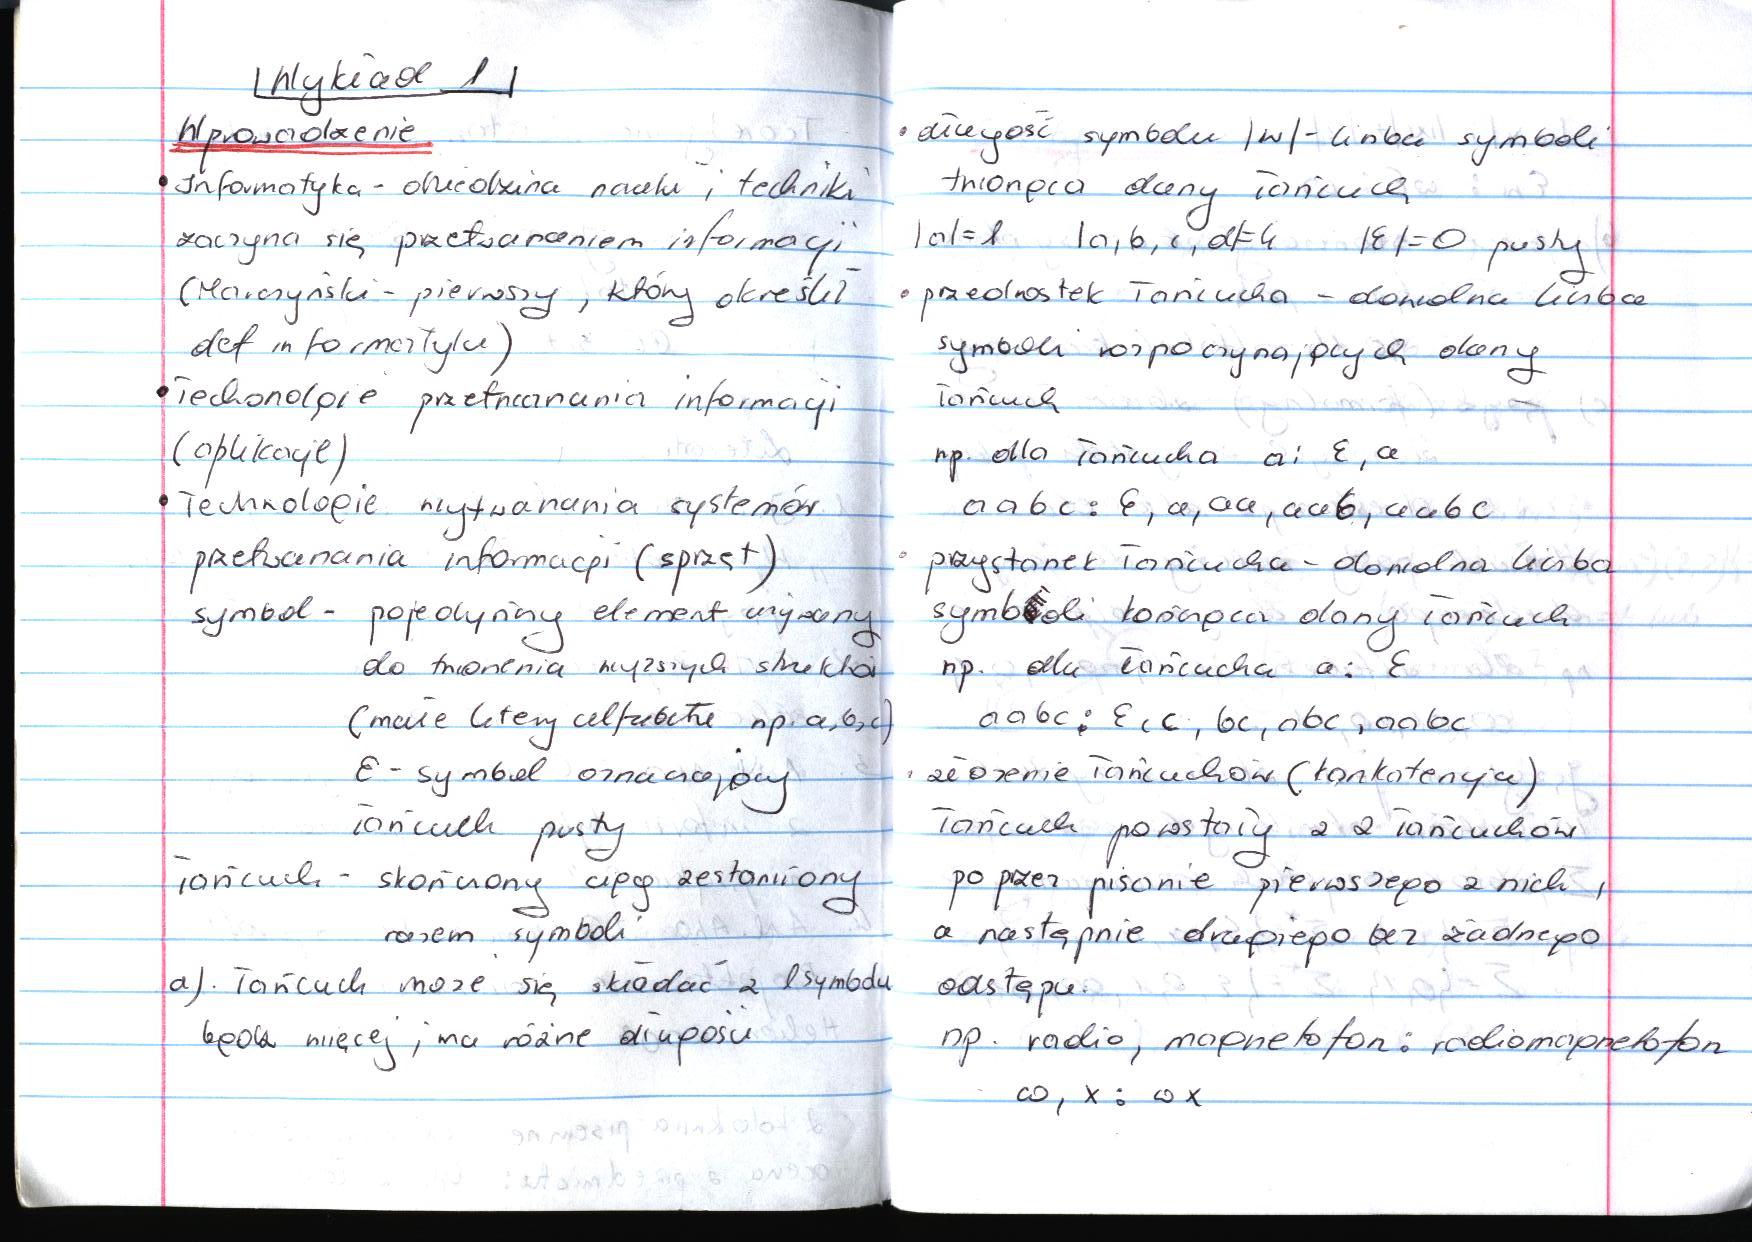 Wykład 1
Wprowadzenie
• Informatyka - dziedzina nauki i techniki
zaczyna się przetwarzaniem informacji
(Marczyński - pierwszy, który określił
def informatyki)
• Techonolgie przetwarzania informacji
(aplikacje)
• Technologie wytwarzania systemów
przetwarzania informacji (sprzęt)
symbol - pojedynczy element używany
do tworzenia wyższych struktur
(małe litery alfabetu np. a, b, c)
Ɛ - symbol oznaczający
łańcuch pusty
łańcuch - skończony ciąg zestawiony
razem symboli
a). łańcuch może się składać z 1 symbolu
bądź więcej, ma różne długości
• długość symbolu |w| - liczba symboli
tworząca dany łańcuch
|a|=1 |a, b, c, d|=4 |Ɛ|=0 pusty
• przedrostek łańcucha - dowolna liczba
symboli rozpoczynających dany
łańcuch
np. dla łańcucha a: Ɛ, a
aabc: Ɛ, a, aa, aab, aabc
• przystanek łańcucha - dowolna liczba
symboli kończąca dany łańcuch
np. dla łańcucha a: Ɛ
aabc: Ɛ, c, bc, abc, aabc
• złożenie łańcuchów (konkatencja)
łańcuch powstały z 2 łańcuchów
poprzez pisanie pierwszego z nich,
a następnie drugiego bez żadnego
odstępu.
np. radio, magnetofon: radiomagnetofon
ω, x: ωx